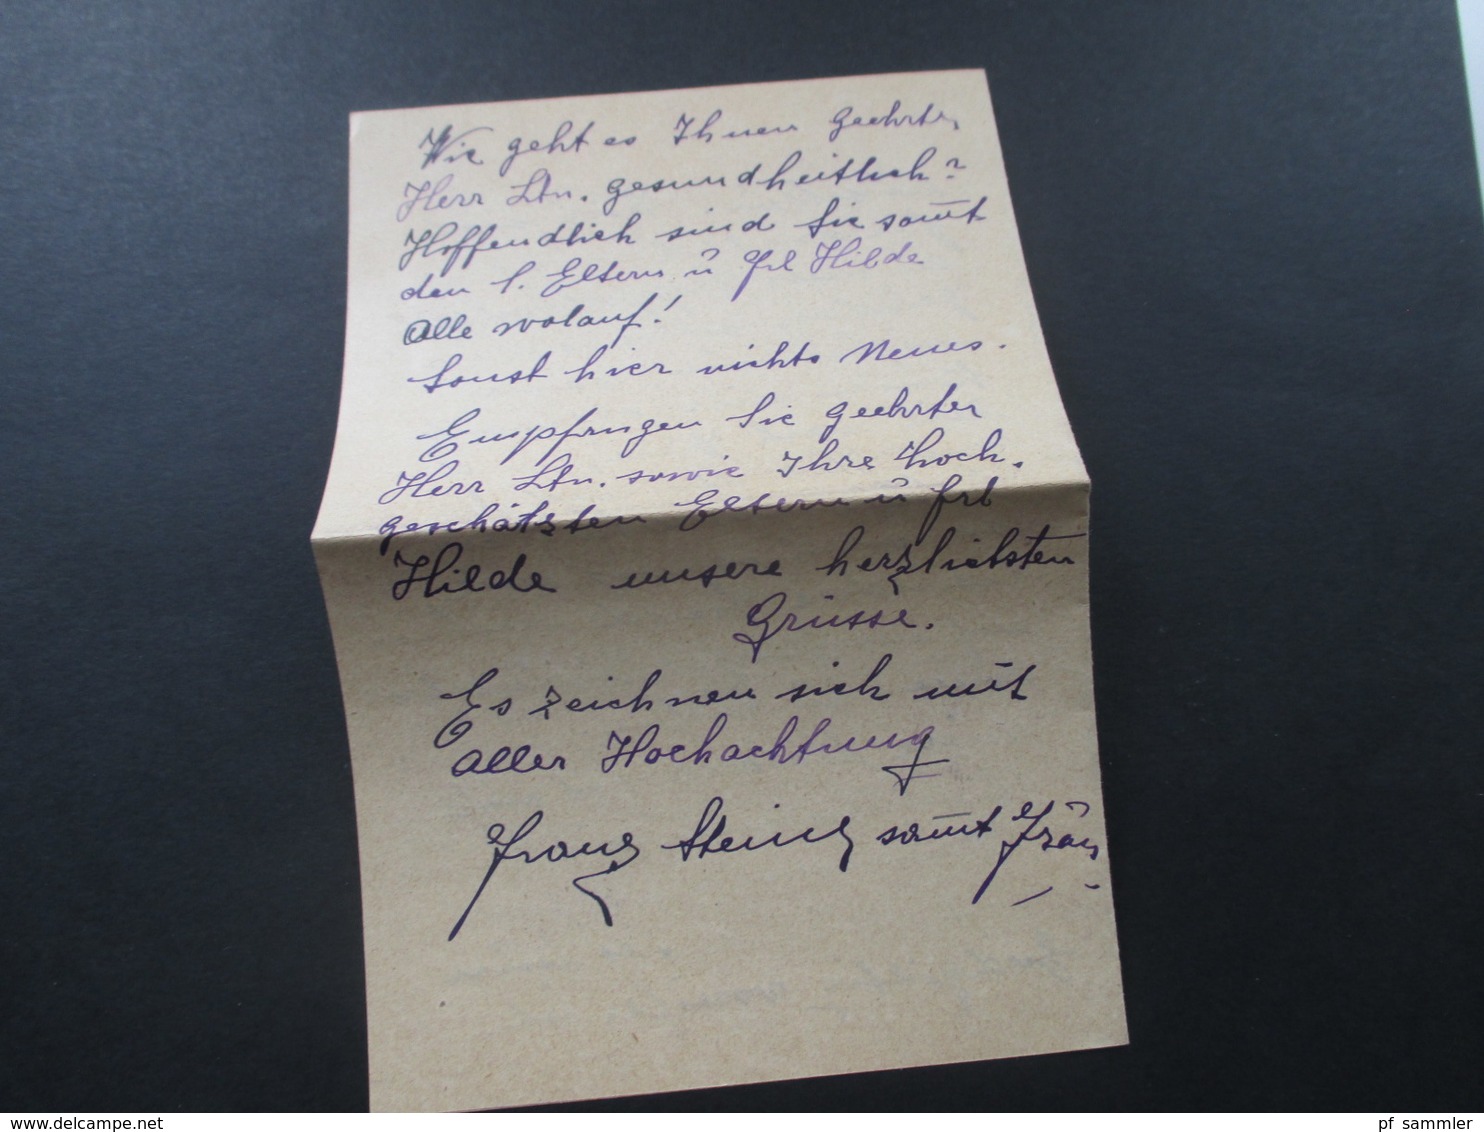 Wie geht es Ihnen Geehrter
Herr Ltn. gesundheitlich?
Hoffendlich sind Sie samt
den l. Eltern u Frl Hilde
Alle wolauf!
Sonst hier nichts Neues.
Empfangen Sie Geehrter
Herr Ltn. sowie Ihre hoch.
geschätzten Eltern u Frl
Hilde unsere herzlichsten
Grüsse.
Es zeichnen sich mit
aller Hochachtung
Franz samt
pf sammler
www.delcampe.net